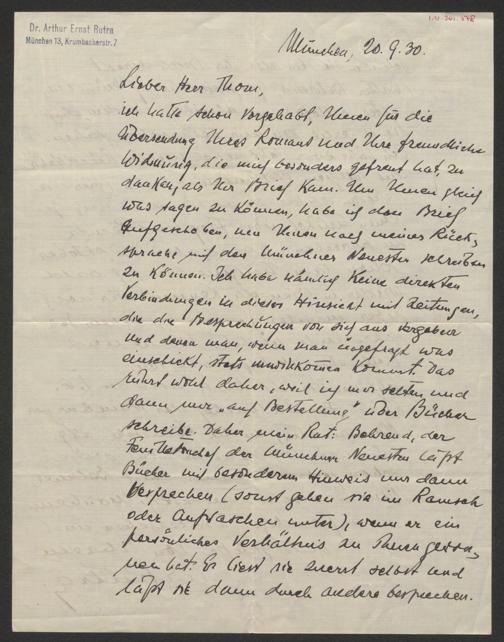 Dr. Arthur Ernst Rutra
München 13, Krumbacherstr. 7
München, 20.9.30.
Lieber Herr Thom,
ich hatte schon vorgehabt, Ihnen für die
Übersendung Ihres Romans und Ihre freundliche
Widmung, die mich besonders gefreut hat, zu
danken, als Ihr Brief kam. Um Ihnen gleich
was sagen zu können, habe ich den Brief
aufgeschoben, um Ihnen nach meiner Rück-
sprache mit den Münchner Neuesten schreiben
zu können. Ich habe nämlich keine direkten
Verbindungen in dieser Hinsicht mit Zeitungen,
die die Besprechungen von sich aus vergeben
und denen man, wenn man ungefragt was
einschickt, stets unwillkommen kommt. Das
rührt wohl daher, weil ich nur selten und
dann nur „auf Bestellung" über Bücher
schreibe. Daher mein Rat: Behrend, der
Feuilletonchef der Münchner Neuesten läßt
Bücher mit besonderem Hinweis nur dann
besprechen (sonst gehen sie im Ramsch
oder Aufwaschen unter), wenn er ein
persönliches Verhältnis zu ihnen gewon-
nen hat. Er liest sie zuerst selbst und
läßt sie dann durch andere besprechen.